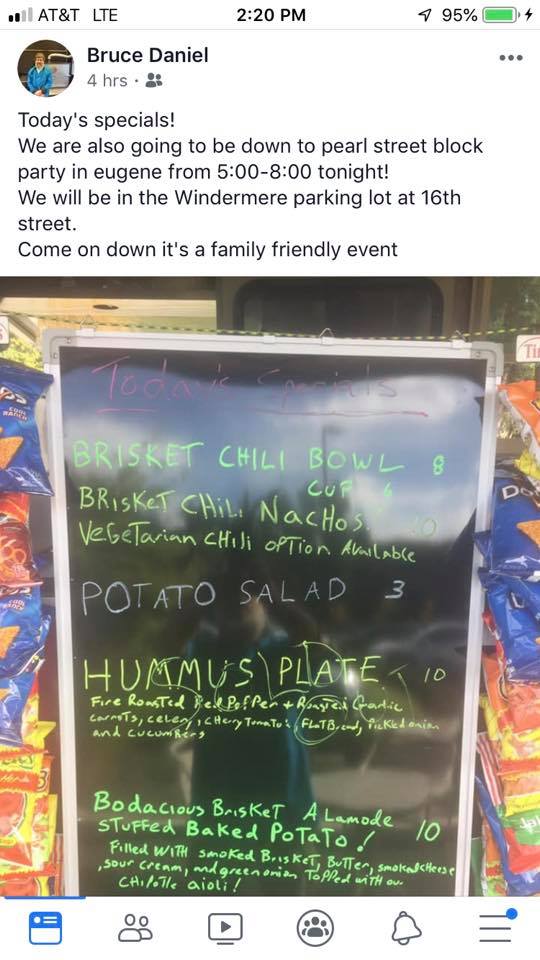 AT&T LTE 2:20 PM 95%
Bruce Daniel
4 hrs
Today's specials!
We are also going to be down to pearl street block
party in eugene from 5:00-8:00 tonight!
We will be in the Windermere parking lot at 16th
street.
Come on down it's a family friendly event
Today's Specials
BRISKET CHILI BOWL 8
CUP 6
BRISKET CHILI NACHOS 10
VEGETARIAN CHILI OPTION AVAILABLE
POTATO SALAD 3
HUMMUS PLATE 10
Fire Roasted Red Pepper + Roasted Garlic
carrots, celery, cherry Tomato's, FLATBread, Pickled onion
and cucumbers
Bodacious Brisket A Lamode
STUFFED Baked Potato! 10
Filled WITH smoked Brisket, Butter, smoked cheese
, sour cream, and green onion Topped with our
CHIPOTle aioli!
COOL RANCH
COOL RANCH
Do